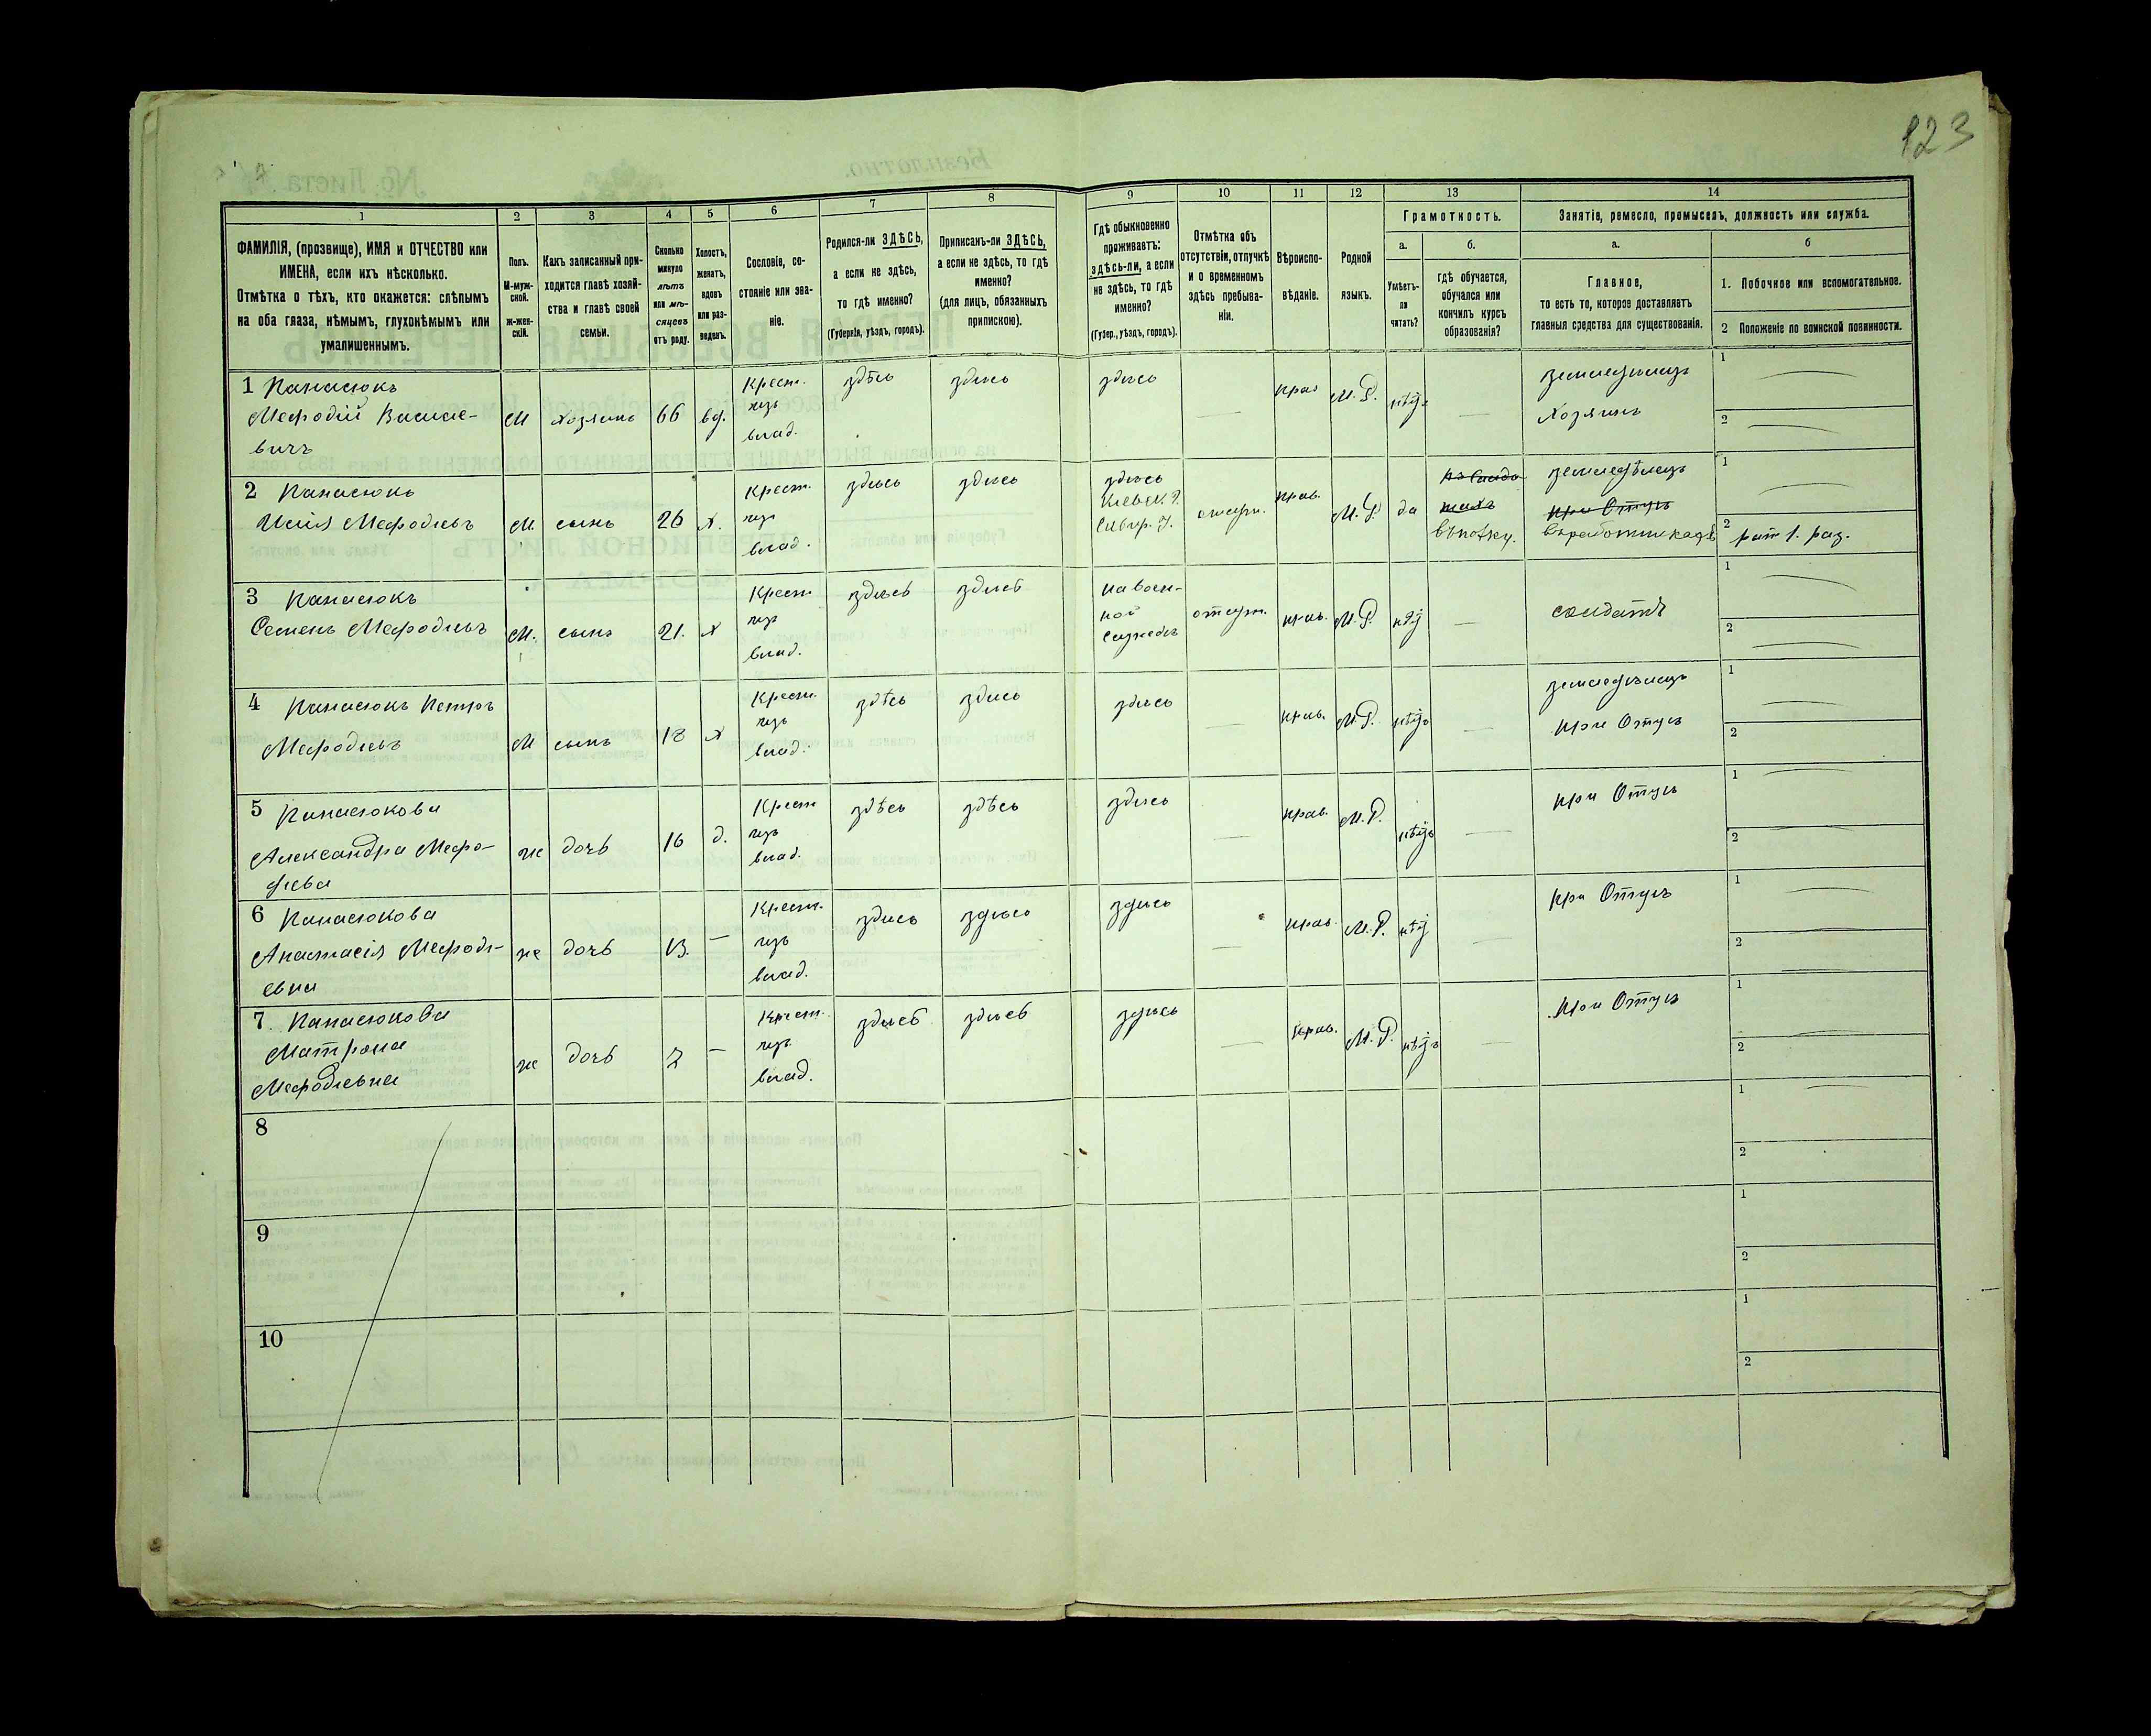 123
1 2 3 4 5 6 7 8 9 10 11 12 13 14
ФАМИЛІЯ, (прозвище), ИМЯ и ОТЧЕСТВО или
ИМЕНА, если ихъ нѣсколько.
Отмѣтка о тѣхъ, кто окажется: слѣпымъ
на оба глаза, нѣмымъ, глухонѣмымъ или
умалишеннымъ.
Полъ.
М-муж-
ской.
Ж-жен-
скій.
Какъ записанный при-
ходится главѣ хозяй-
ства и главѣ своей
семьи.
Сколько
минуло
лѣтъ
или мѣ-
сяцевъ
отъ роду.
Холостъ,
женатъ,
вдовъ
или раз-
веденъ.
Сословіе, со-
стояніе или зва-
ніе.
Родился-ли ЗДѢСЬ,
а если не здѣсь,
то гдѣ именно?
(Губернія, уѣздъ, городъ).
Приписанъ-ли ЗДѢСЬ,
а если не здѣсь, то гдѣ
именно?
(для лицъ, обязанныхъ
припискою).
Гдѣ обыкновенно
проживаетъ:
здѣсь-ли, а если
не здѣсь, то гдѣ
именно?
(Губер., уѣздъ, городъ).
Отмѣтка объ
отсутствіи, отлучкѣ
и о временномъ
здѣсь пребыва-
ніи.
Вѣроиспо-
вѣданіе.
Родной
языкъ.
Грамотность.
а.
Умѣетъ-
ли
читать?
б.
гдѣ обучается,
обучался или
кончилъ курсъ
образованія?
Занятіе, ремесло, промыселъ, должность или служба.
а.
Главное,
то есть то, которое доставляетъ
главныя средства для существованія.
б
1. Побочное или вспомогательное.
2 Положеніе по воинской повинности.
1 Панасюкъ
Мефодій Василе-
вичъ
М
хозяинъ
66
вд.
Крест.
изъ
влад.
здѣсь
здѣсь
здѣсь
прав
М. Р.
нѣтъ
земледѣлецъ
хозяинъ
1
2
2 Панасюкъ
Илія Мефодіевъ
М.
сынъ
26
х.
Крест.
изъ
влад.
здѣсь
здѣсь
здѣсь
Кіевск. г.
прав.
М. Р.
да
земледѣлецъ
при Отцѣ
1
2 рат 1. раз.
3 Панасюкъ
Семенъ Мефодіевъ
М.
сынъ
21.
х
Крест
изъ
влад.
здѣсь
здѣсь
на воен-
ной
службѣ
отсут.
прав.
М. Р.
нѣт
солдатъ
1
2
4 Панасюкъ Петръ
Мефодіевъ
М
сынъ
18
х
Крест.
изъ
влад.
здѣсь
здѣсь
здѣсь
прав.
М. Р.
нѣтъ
земледѣлецъ
при Отцѣ
1
2
5 Панасюкова
Александра Мефо-
діева
ж
дочь
16
д.
Крест
изъ
влад.
здѣсь
здѣсь
здѣсь
прав.
М. Р.
нѣтъ
при Отцѣ
1
2
6 Панасюкова
Анастасія Мефоді-
евна
ж
дочь
13.
Крест.
изъ
влад.
здѣсь
здѣсь
здѣсь
прав.
М. Р.
нѣт
при Отцѣ
1
2
7 Панасюкова
Матрона
Мефодіевна
ж
дочь
7
Крест.
изъ
влад.
здѣсь
здѣсь
здѣсь
прав.
М. Р.
нѣтъ
при Отцѣ
1
2
8
1
2
9
1
2
10
1
2